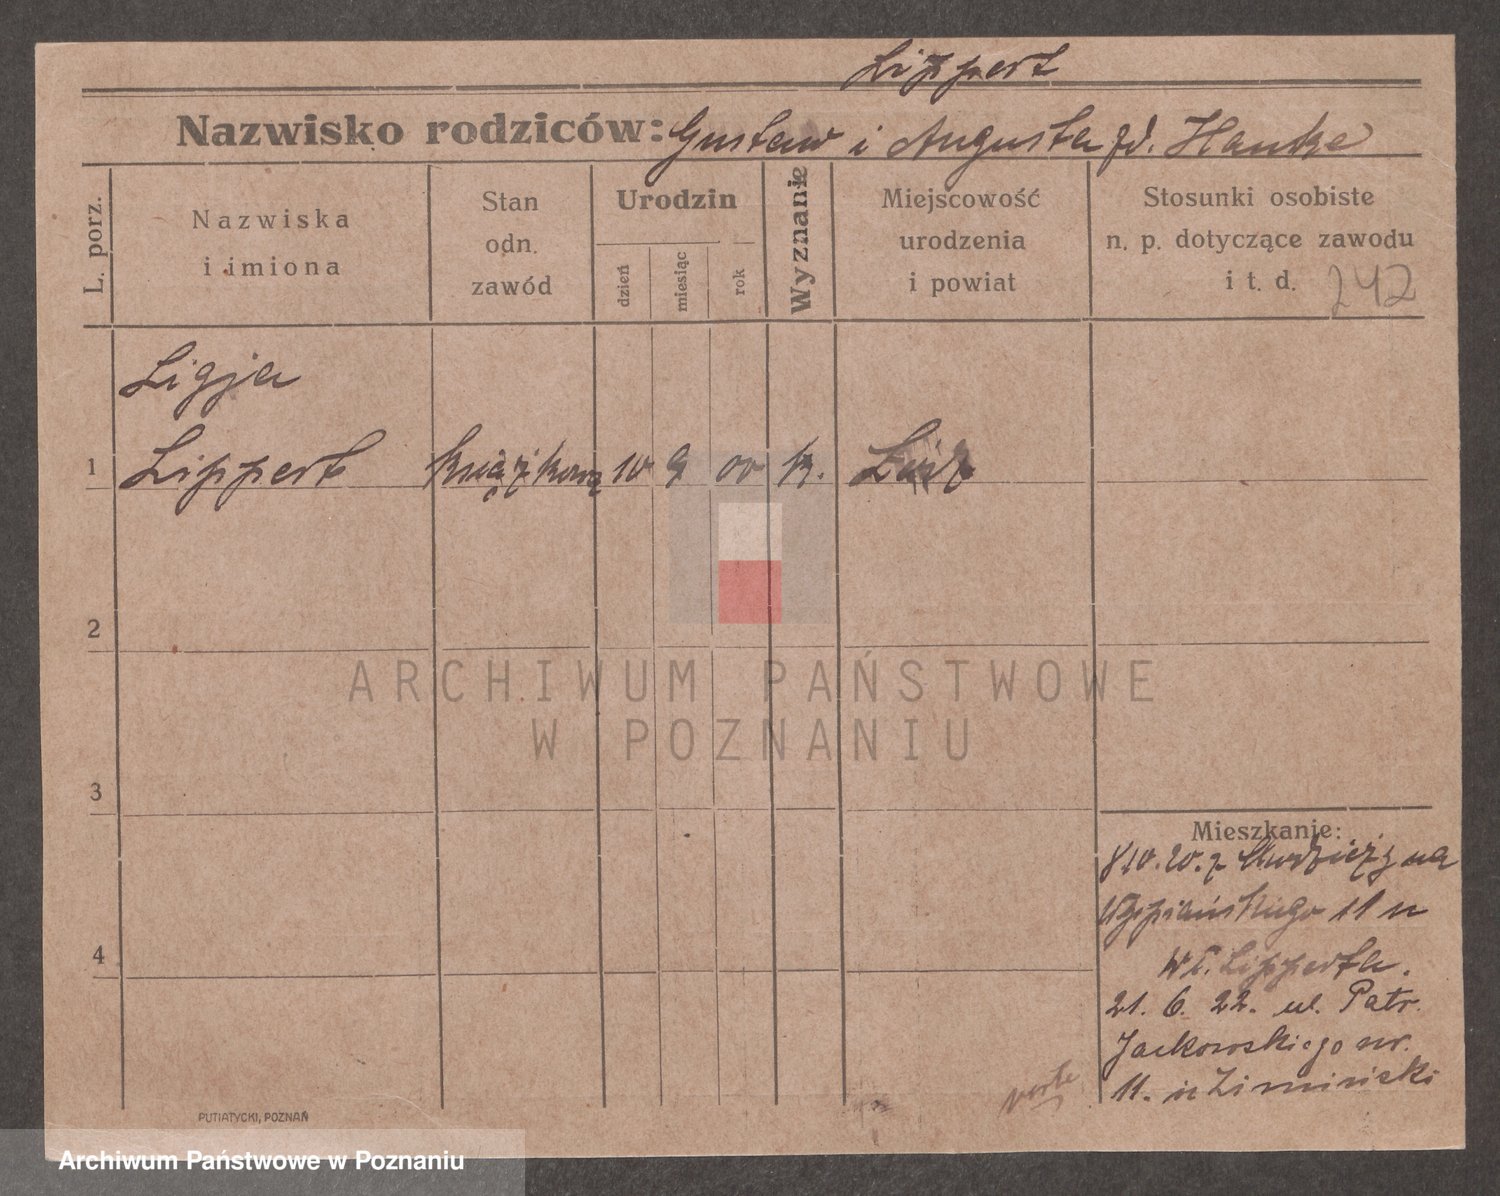 Lippert
Nazwisko rodziców: Gustaw i Augusta zd. Hanke
L. porz.
Nazwiska
i imiona
Stan
odn.
zawód
Urodzin
dzień
miesiąc
rok
Wyznanie
Miejscowość
urodzenia
i powiat
Stosunki osobiste
n. p. dotyczące zawodu
i t. d. 242
Ligja
1 Lippert książkowa 10 9 00 k.
2
3
4
Mieszkanie:
810.20. z na
Wyspiańskiego 11 u
Wł. Lipperta.
21. 6. 22. ul. Patr.
Jackowskiego nr.
11. u Zimiński
verte
PUTIATYCKI, POZNAŃ
ARCHIWUM PAŃSTWOWE
W POZNANIU
Archiwum Państwowe w Poznaniu